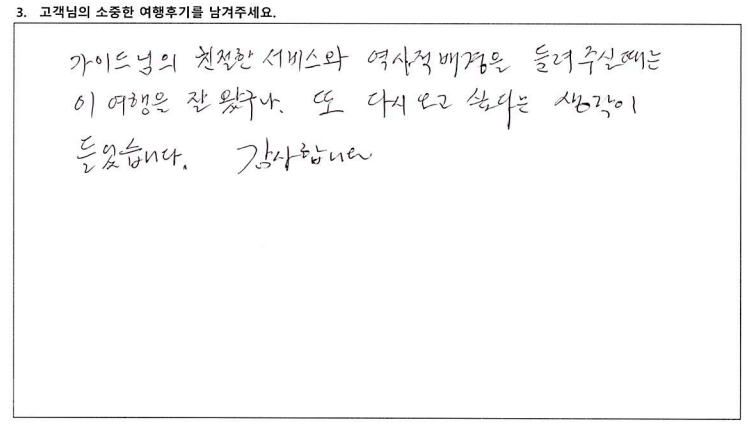 3. 고객님의 소중한 여행후기를 남겨주세요.
가이드님의 친절한 서비스와 역사적배경을 들려주실때는
이 여행을 잘 왔구나. 또 다시 오고 싶다는 생각이
들었습니다. 감사합니다